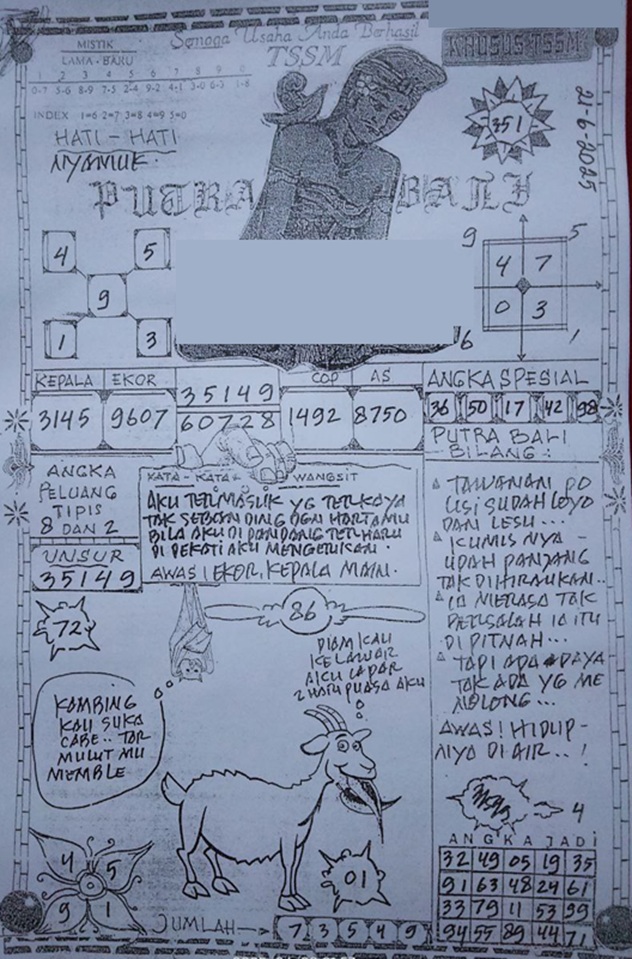 Semoga Usaha Anda Berhasil
TSSM
KHUSUS TSSM
MISTIK
LAMA - BARU
1 2 3 4 5 6 7 8 9 0
0-7 5-6 8-9 7-5 2-4 9-2 4-1 3-0 6-3 1-8
INDEX 1=6 2=7 3=8 4=9 5=0
HATI - HATI
NYAMUK.
351
21-6-2025
PUTRA BALI
4 5
9
1 3
9 5
4 7
0 3
6 1
KEPALA EKOR
3145 9607
35149
60728
COP AS
1492 8750
ANGKA SPESIAL
36 50 17 42 98
PUTRA BALI
BILANG :
ANGKA
PELUANG
TIPIS
8 DAN 2
UNSUR
35149
KATA - KATA WANGSIT
AKU TERMASUK YG TERKAYA
TAK SEBANDING DGN HARTAMU
BILA AKU DI PANDANG TERHARU
DI DEKATI AKU MENGERIKAN.
AWAS! EKOR, KEPALA MAIN.
TAWANAN PO
LISI SUDAH LOYO
DAN LESU ...
KUMIS NYA -
UDAH PANJANG
TAK DIHIRAUKAN..
IA MERASA TAK
BERSALAH IA ITU
DI PITNAH...
TAPI APA DAYA
TAK ADA YG ME
NOLONG ...
AWAS! HIDUP-
NYA DI AIR .. !
72
86
DIAM KAU
KELAWAR
AKU LAPAR
2 HARI PUASA AKU
KAMBING
KAU SUKA
CABE.. TAR
MULUT MU
MEMBLE
4
4 5
9 1
01
JUMLAH
7 3 5 4 9
ANGKA JADI
32 49 05 19 35
91 63 48 29 61
33 79 11 53 99
94 55 89 44 71